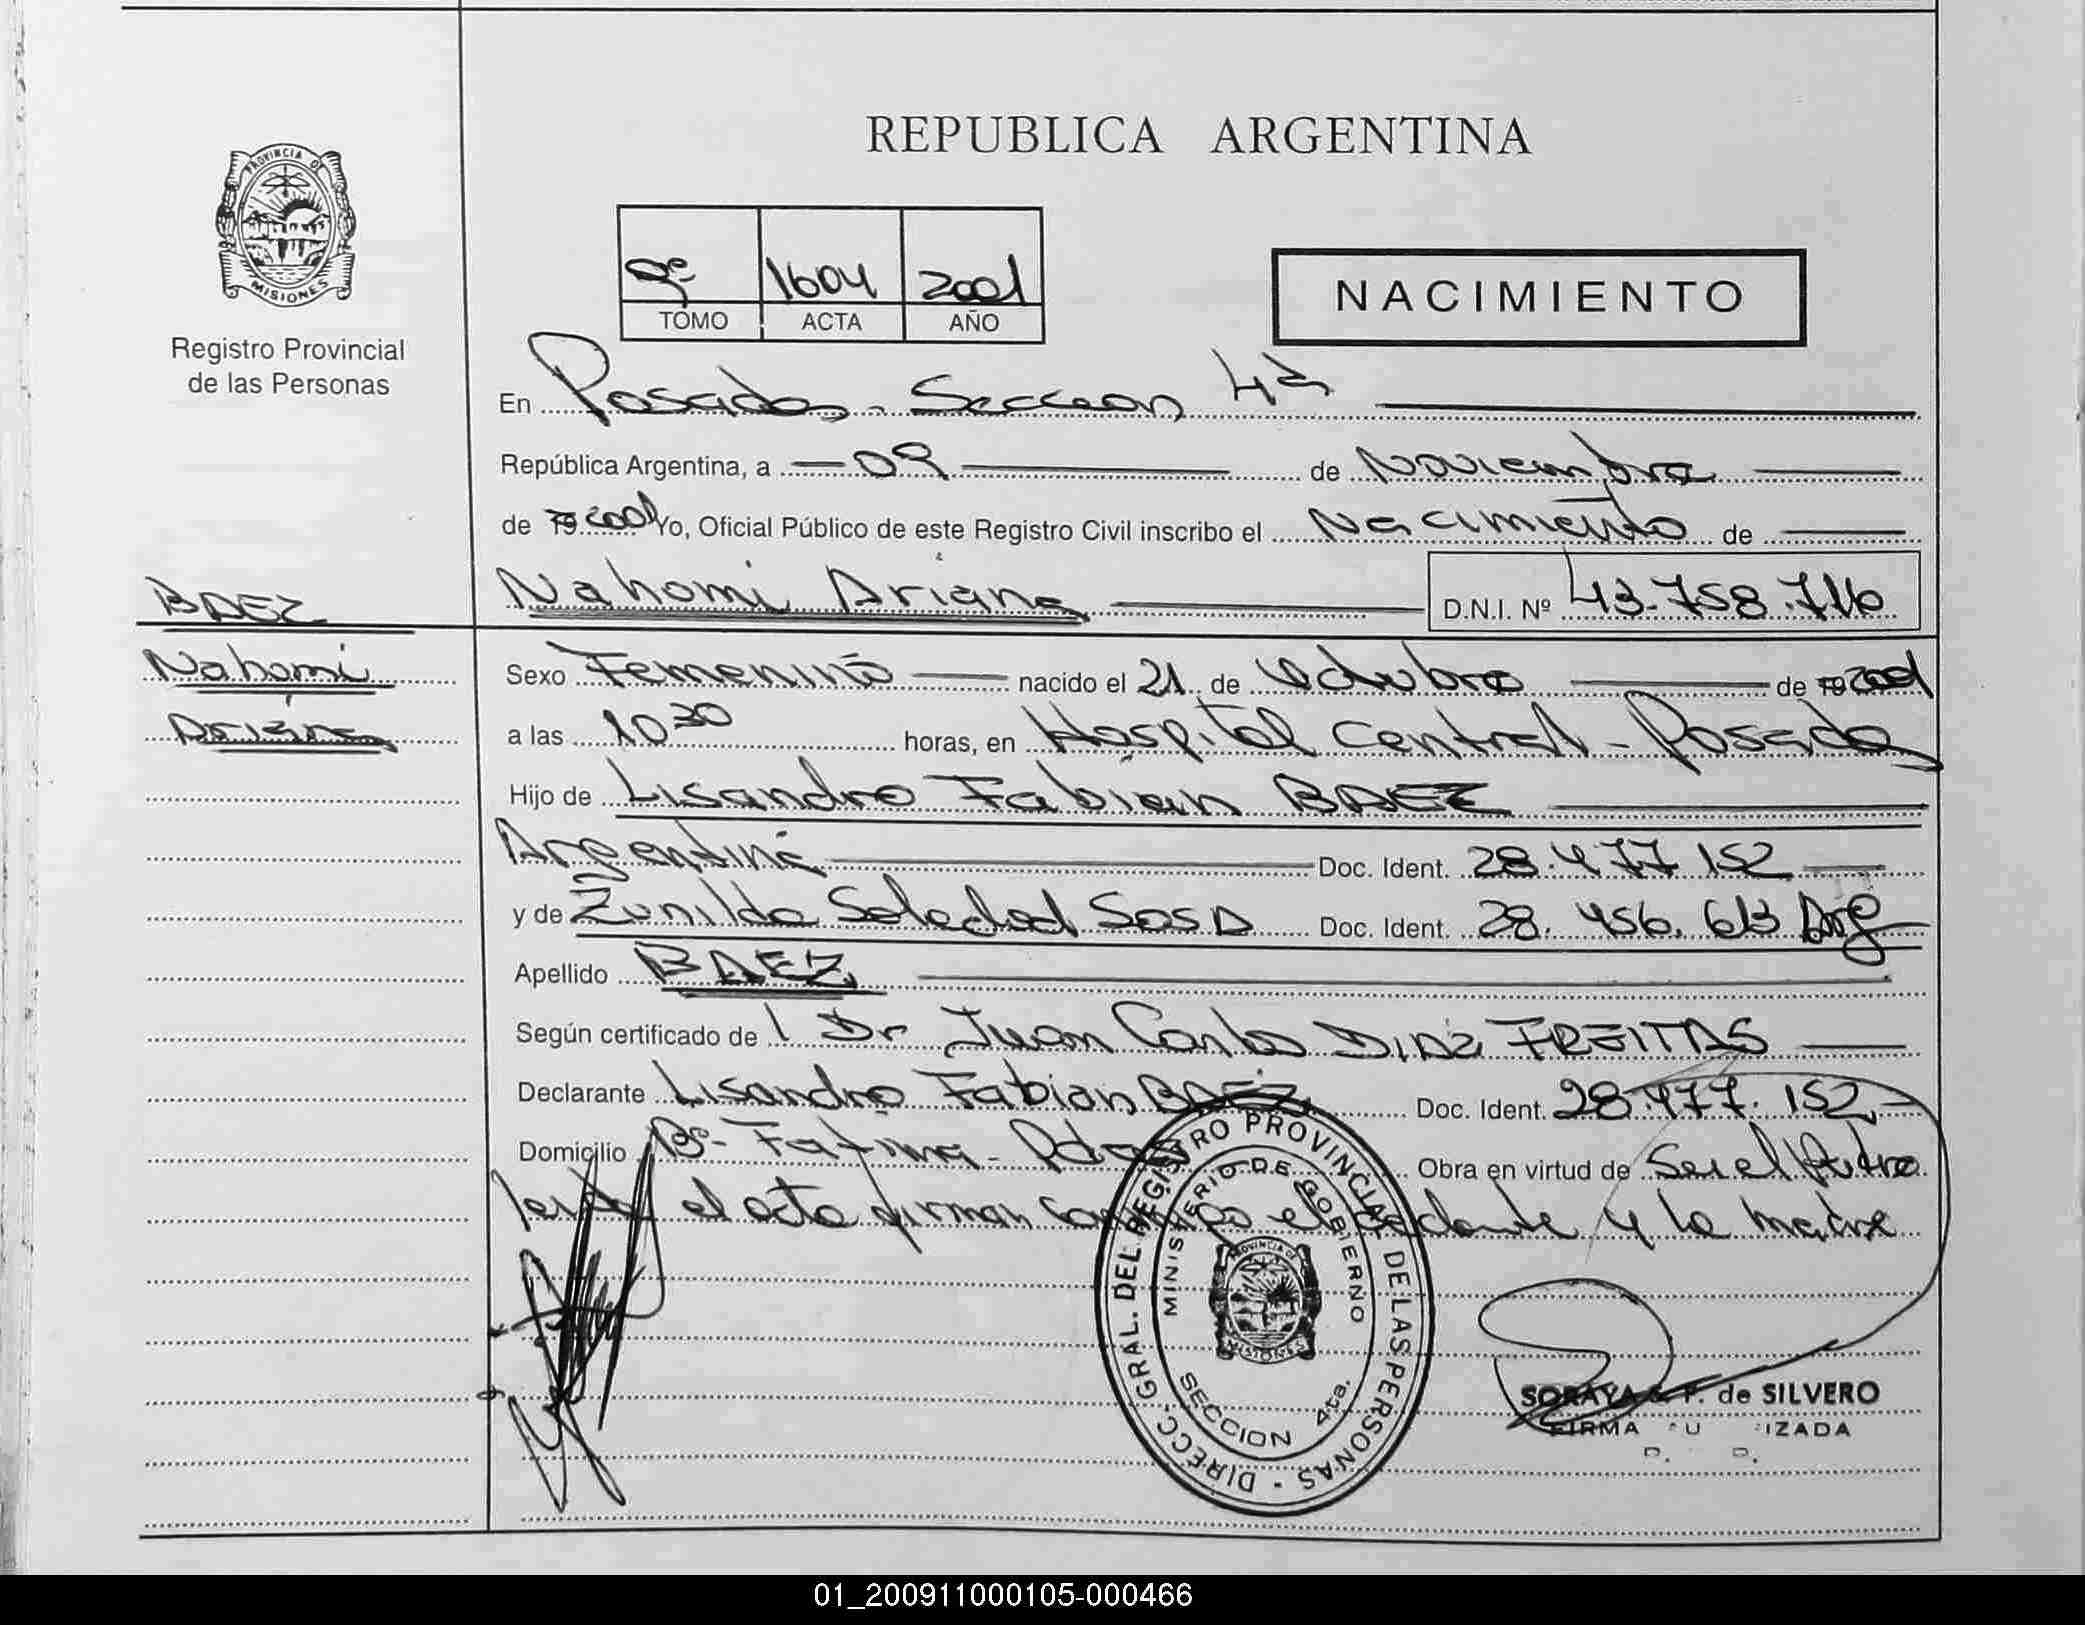 REPUBLICA ARGENTINA
PROVINCIA DE
MISIONES
Registro Provincial
de las Personas
1604 2001
TOMO ACTA AÑO
NACIMIENTO
En Posadas - Seccion 4ª
República Argentina, a 09 de Noviembre
de 19 2001 Yo, Oficial Público de este Registro Civil inscribo el Nacimiento de
Nahomi Ariana D.N.I. Nº 43.758.716
BAEZ
Nahomi
Ariana
Sexo Femenino nacido el 21 de Octubre de 19 2001
a las 10 30 horas, en Hospital Central - Posadas
Hijo de Lisandro Fabián BAEZ
Argentina Doc. Ident. 28.477.152
y de Zunilda Soledad SOSA Doc. Ident. 28.456.613 Arg
Apellido BAEZ
Según certificado de l Dr Juan Carlos DIAZ FREITAS
Declarante Lisandro Fabian BAEZ Doc. Ident. 28.477.152
Domicilio Bº- Fatima - Pdas Obra en virtud de Ser el Padre
el acta firman el y la madre
DIRECC. GRAL. DEL REGISTRO PROVINCIAL DE LAS PERSONAS
MINISTERIO DE GOBIERNO
PROVINCIA DE
MISIONES
SECCION 4ta.
SORAYA P. de SILVERO
FIRMA
01_200911000105-000466